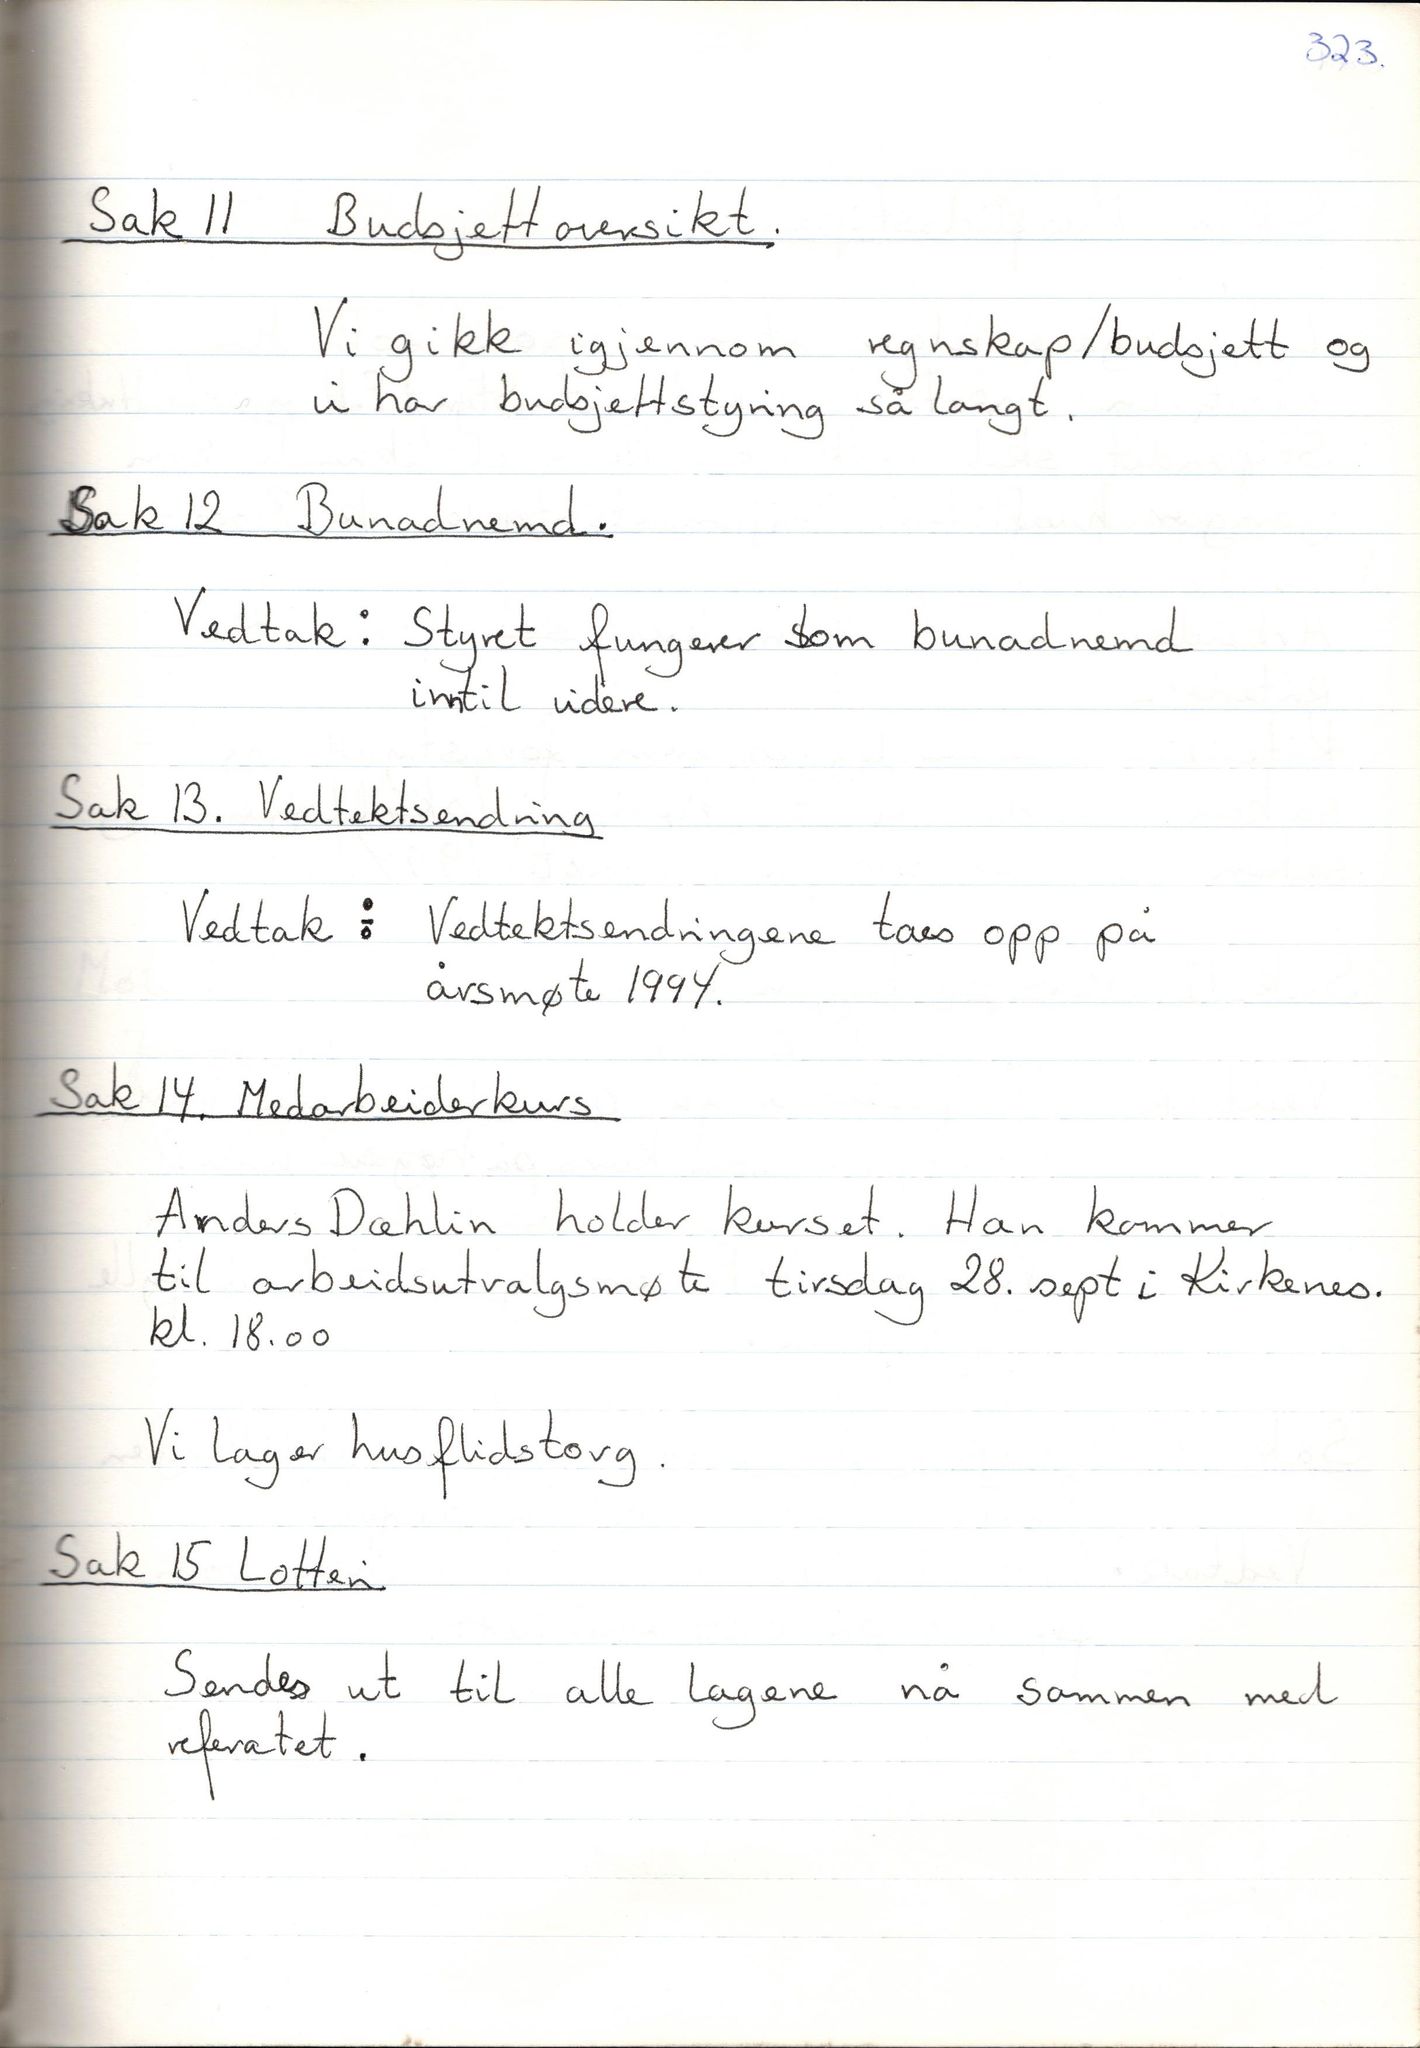 323.
Sak 11 Budsjettoversikt.
Vi gikk igjennom regnskap/budsjett og
vi har budsjettstyring så langt.
Sak 12 Bunadnemd.
Vedtak: Styret fungerer som bunadnemd
inntil videre.
Sak 13. Vedtektsendring
Vedtak: Vedtektsendringene taes opp på
årsmøte 1994.
Sak 14. Medarbeiderkurs
Anders Dæhlin holder kurset. Han kommer
til arbeidsutvalgsmøte tirsdag 28. sept i Kirkenes.
kl. 18.00
Vi lager husflidstorg.
Sak 15 Lotteri
Sendes ut til alle lagene nå sammen med
referatet.